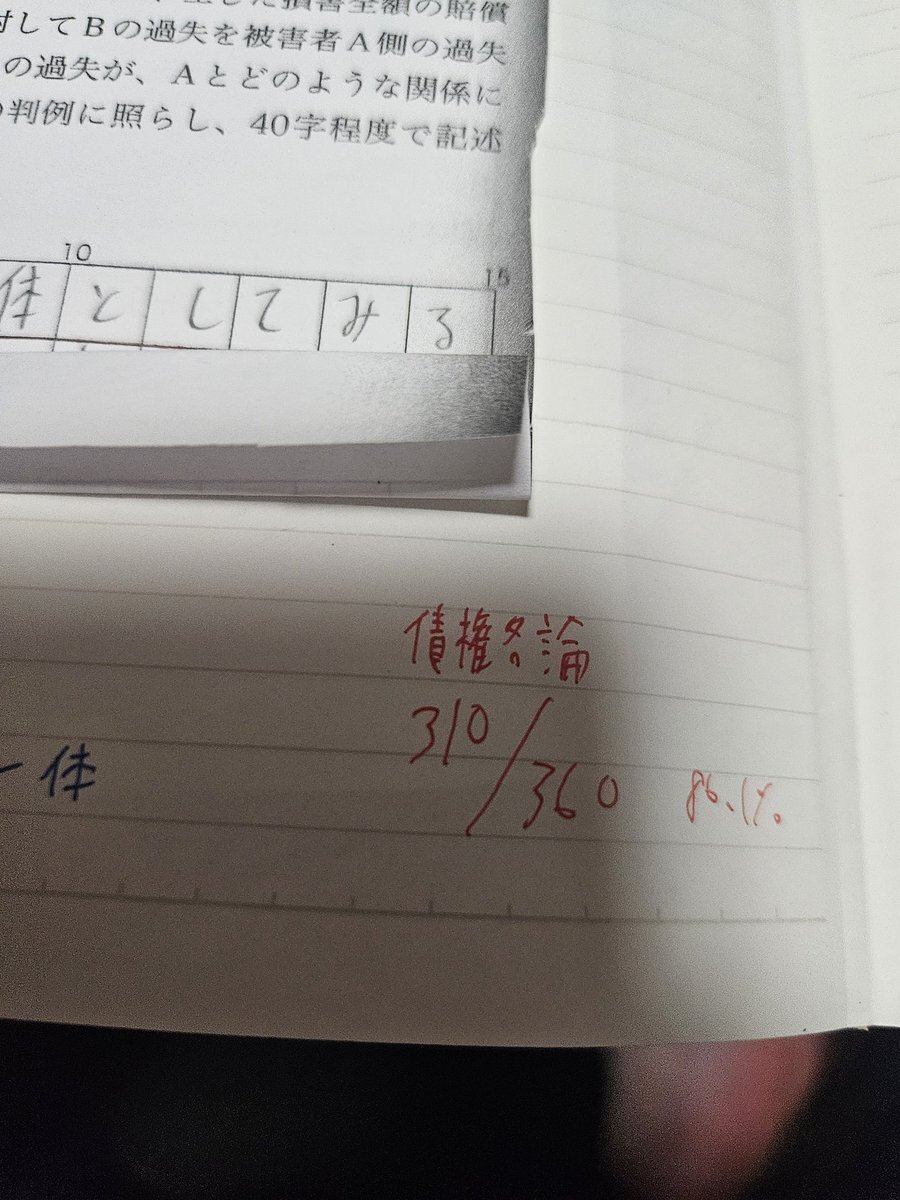 した損害全額の賠償
対してBの過失を被害者A側の過失
の過失が、Aとどのような関係に
の判例に照らし、40字程度で記述
10
15
体としてみる
債権各論
310/360 86.1%
一体